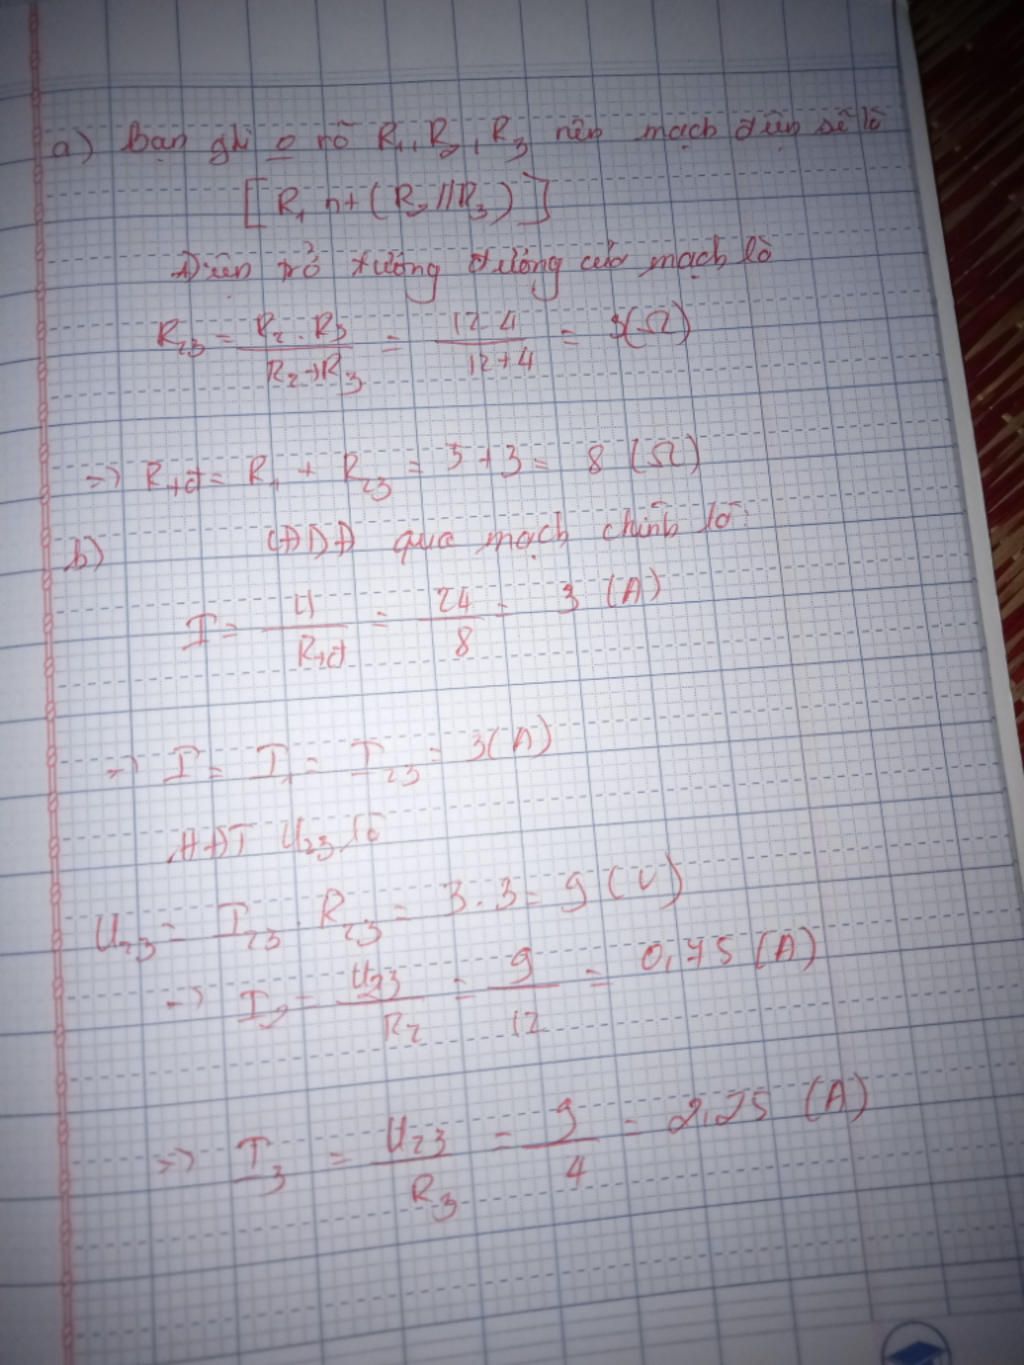 a) Bạn ghi o rõ R1, R2, R3 nên mạch điện sẽ là
[R1 nt (R2 // R3)]
Điện trở tương đương của mạch là
R23 = R2 . R3 / R2 + R3 = 12 . 4 / 12 + 4 = 3 (Ω)
=> Rtđ = R1 + R23 = 5 + 3 = 8 (Ω)
b) CĐDĐ qua mạch chính là:
I = U / Rtđ = 24 / 8 = 3 (A)
=> I = I1 = I23 = 3 (A)
HĐT U23 là
U23 = I23 . R23 = 3 . 3 = 9 (V)
=> I2 = U23 / R2 = 9 / 12 = 0,75 (A)
=> I3 = U23 / R3 = 9 / 4 = 2,25 (A)